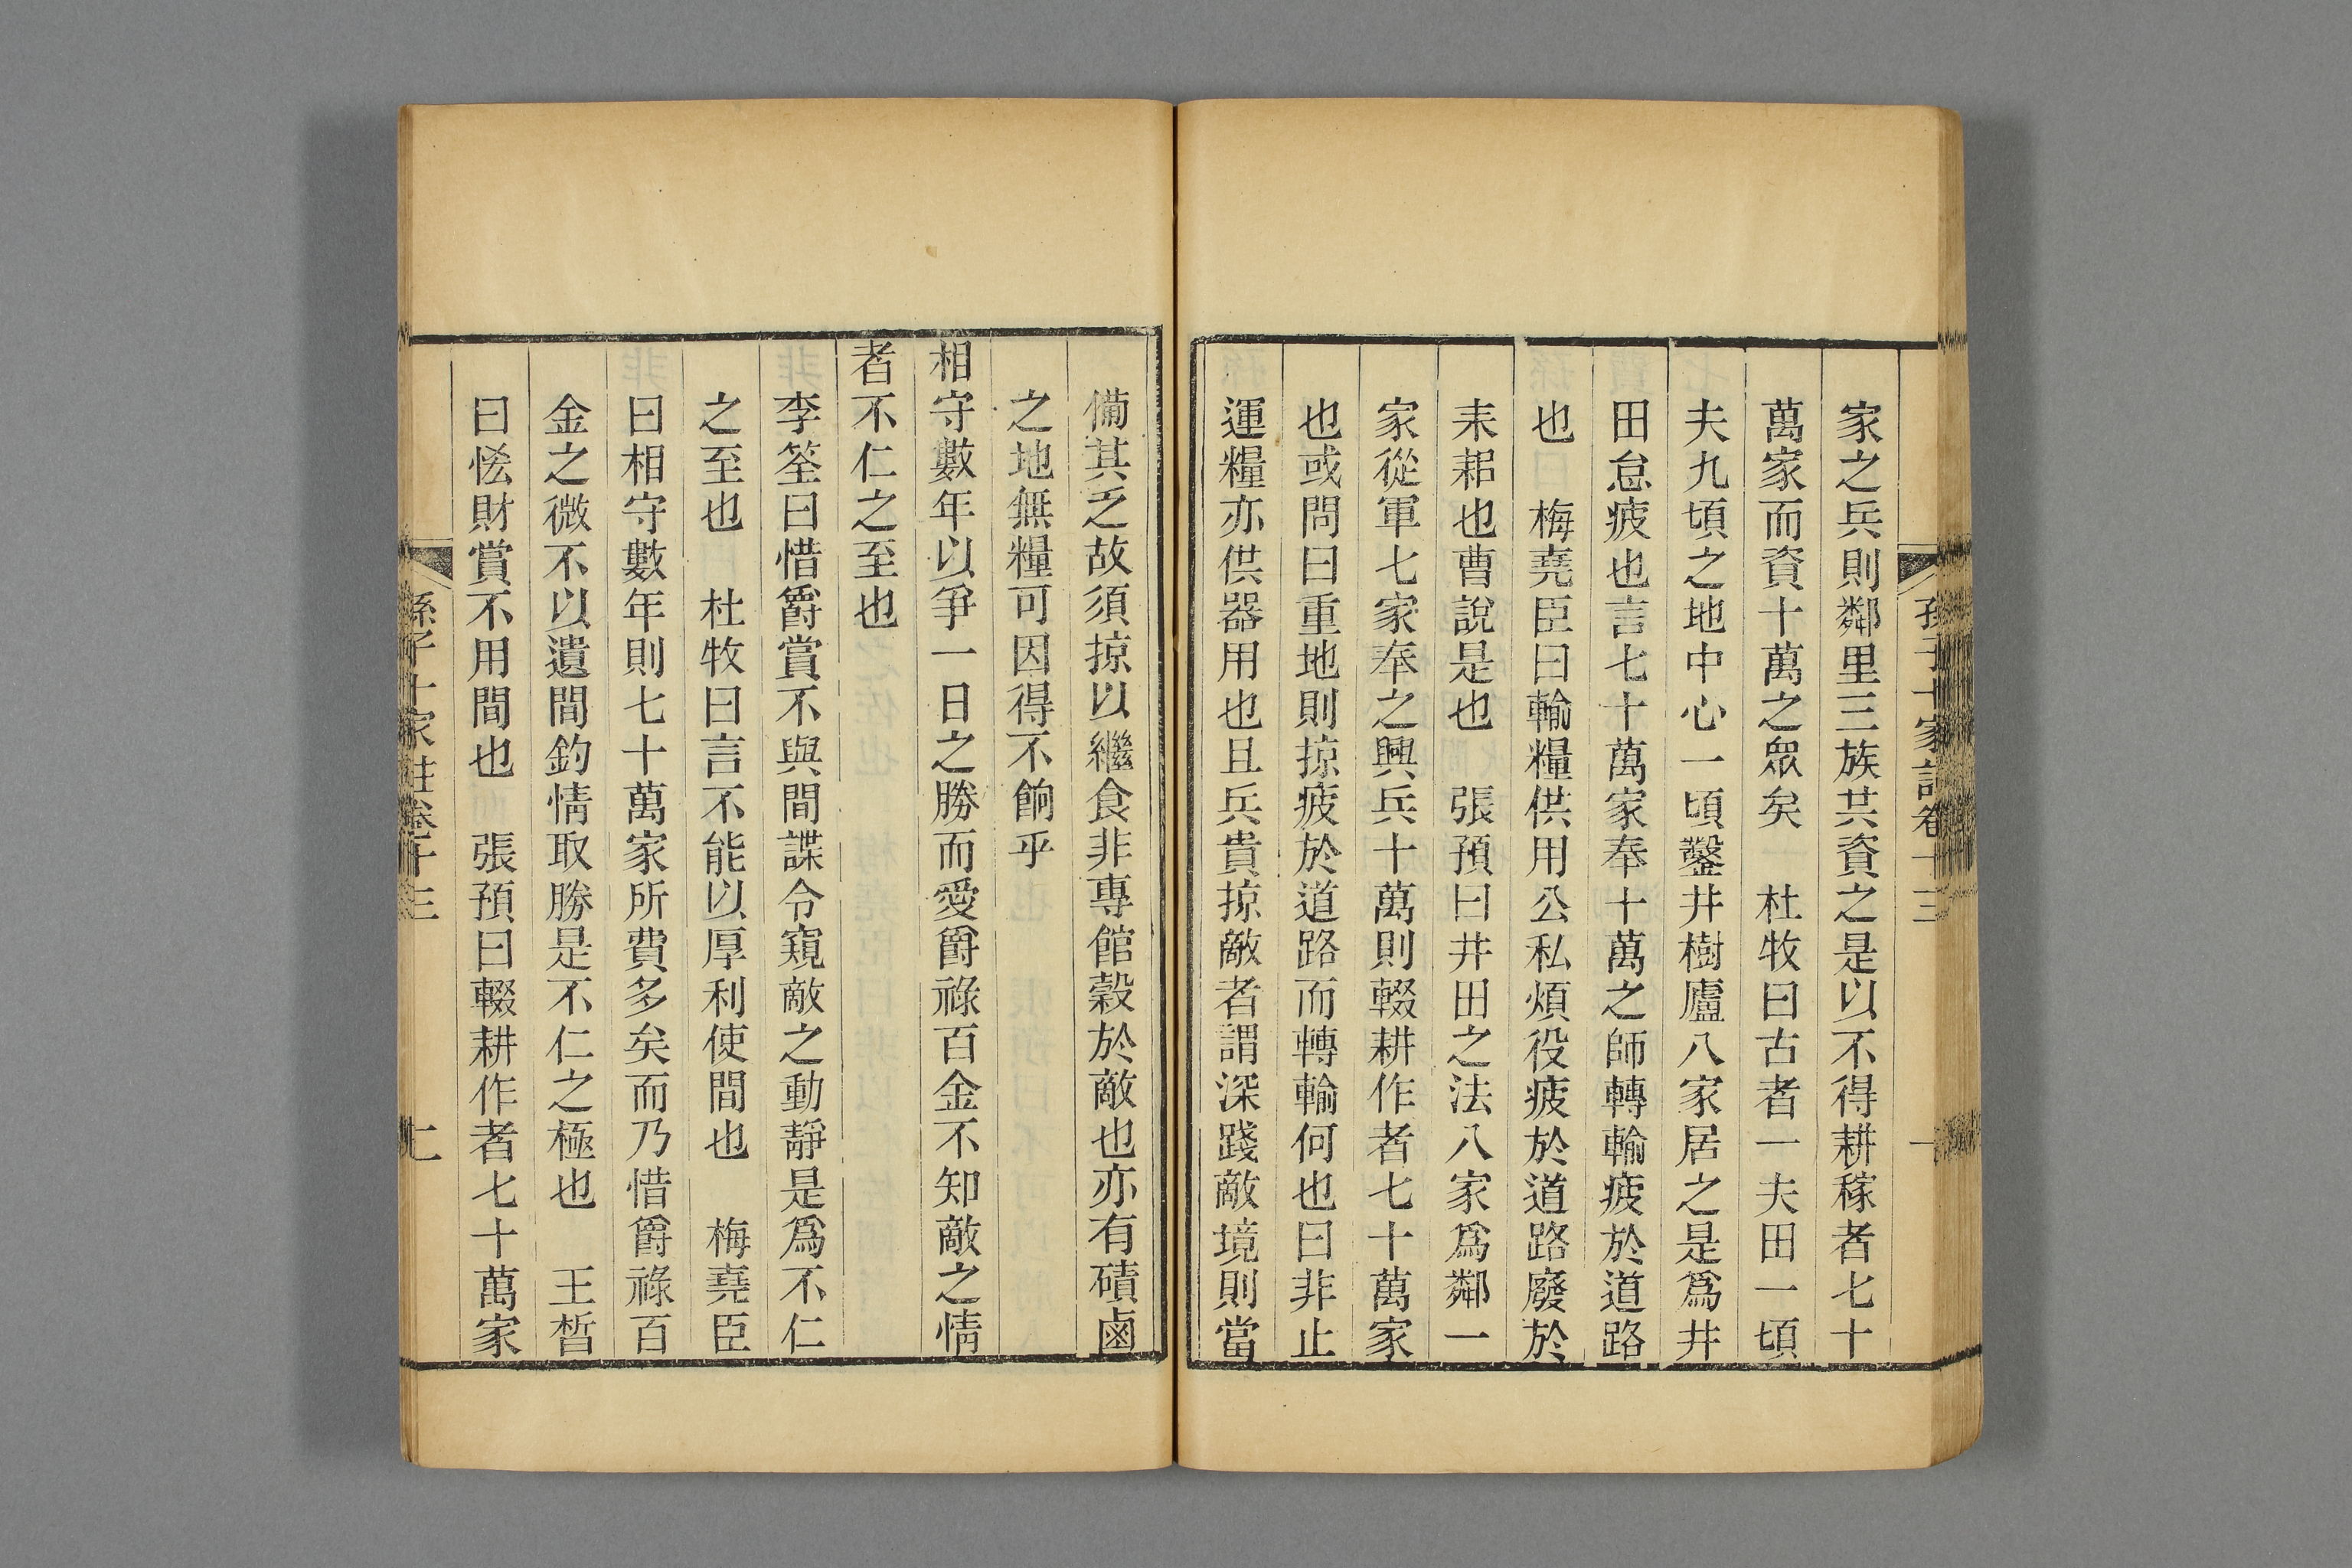 孫子十家註卷十三
家之兵則鄰里三族共資之是以不得耕稼者七十
萬家而資十萬之眾矣　杜牧曰古者一夫田一頃
夫九頃之地中心一頃鑿井樹廬八家居之是爲井
田怠疲也言七十萬家奉十萬之師轉輸疲於道路
也　梅堯臣曰輸糧供用公私煩役疲於道路廢於
耒耜也曹說是也　張預曰井田之法八家爲鄰一
家從軍七家奉之興兵十萬則輟耕作者七十萬家
也或問曰重地則掠疲於道路而轉輸何也曰非止
運糧亦供器用也且兵貴掠敵者謂深踐敵境則當
備其乏故須掠以繼食非專館穀於敵也亦有磧鹵
之地無糧可因得不餉乎
相守數年以爭一日之勝而愛爵祿百金不知敵之情
者不仁之至也
李筌曰惜爵賞不與間諜令窺敵之動靜是爲不仁
之至也　杜牧曰言不能以厚利使間也　梅堯臣
曰相守數年則七十萬家所費多矣而乃惜爵祿百
金之微不以遺間釣情取勝是不仁之極也　王晳
曰恡財賞不用間也　張預曰輟耕作者七十萬家
孫子十家註卷十三
七